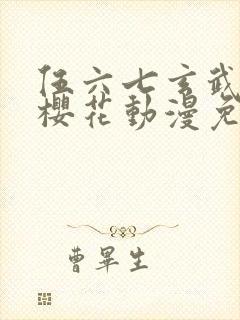 伍六七玄武
櫻花動漫免
曹畢生